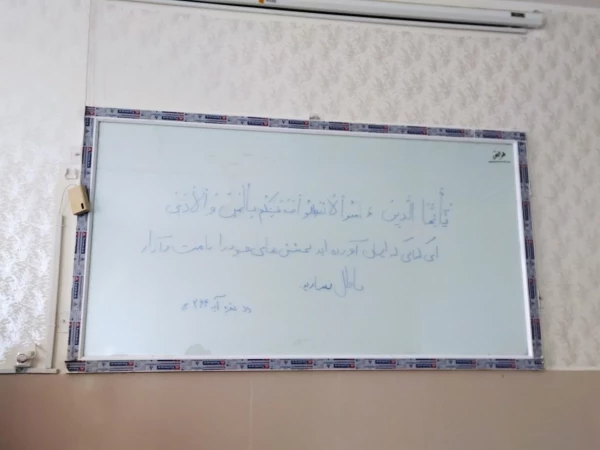 یَا أَیُّهَا الَّذِینَ لَا تُبْطِلُوا صَدَقَاتِكُمْ بِالْمَنِّ وَالْأَذَىٰ
ای کسانی که ایمان آورده اند بخشش های خود را با منت و آزار
باطل نسازید
بقره آیه ۲۶۴